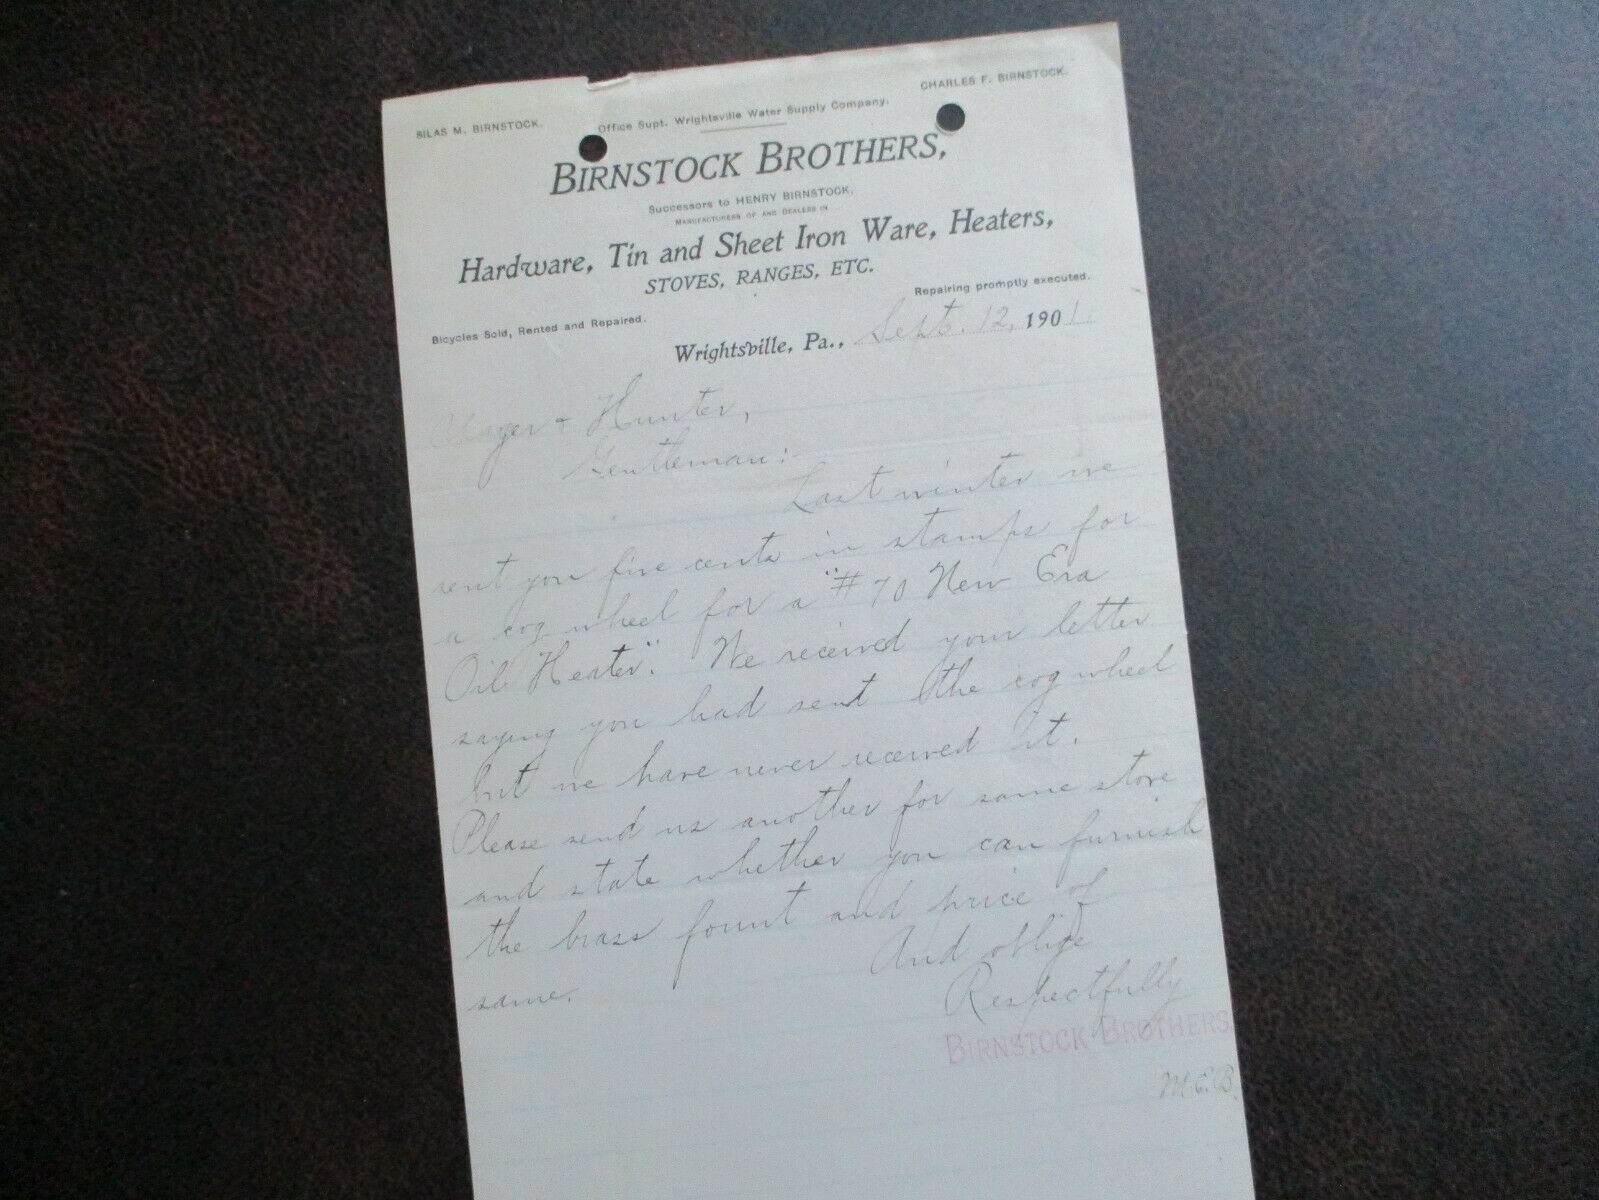 SILAS M. BIRNSTOCK. CHARLES F. BIRNSTOCK.
Office Supt. Wrightsville Water Supply Company.
BIRNSTOCK BROTHERS,
Successors to HENRY BIRNSTOCK,
MANUFACTURERS OF AND DEALERS IN
Hardware, Tin and Sheet Iron Ware, Heaters,
STOVES, RANGES, ETC.
Bicycles Sold, Rented and Repaired. Repairing promptly executed.
Wrightsville, Pa., Sept. 12, 1901.
Mayer & Hunter,
Gentleman:-
Last winter we
sent you five cents in stamps for
a cog wheel for a "#70 New Era
Oil Heater". We received your letter
saying you had sent the cog wheel
but we have never received it.
Please send us another for same stove
and state whether you can furnish
the brass fount and price of
same. And oblige
Respectfully
BIRNSTOCK BROTHERS
M.E.B.